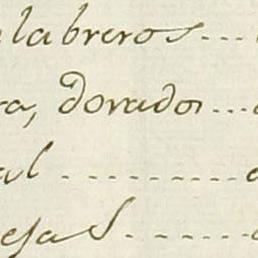 labreros...
ra, dorados...
al .........
esas.......